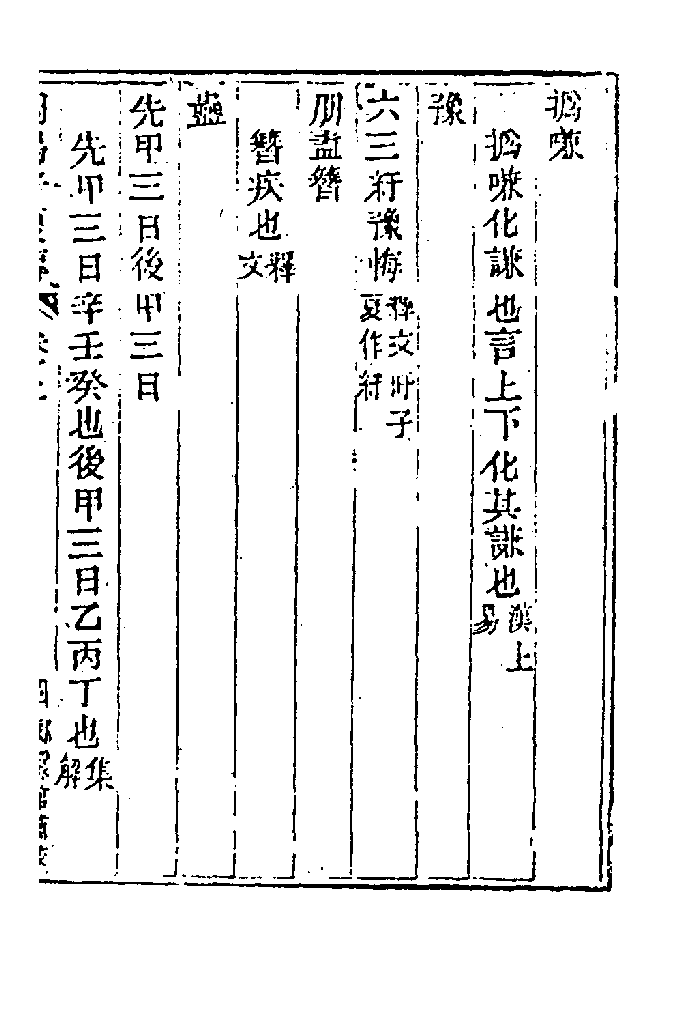 撝嗛
撝嗛化謙也言上下化其謙也漢上易
豫
六三紆豫悔釋文盱子夏作紆
朋盍簪
簪疾也釋文
蠱
先甲三日後甲三日
先甲三日辛壬癸也後甲三日乙丙丁也集解
周易子夏傳 四